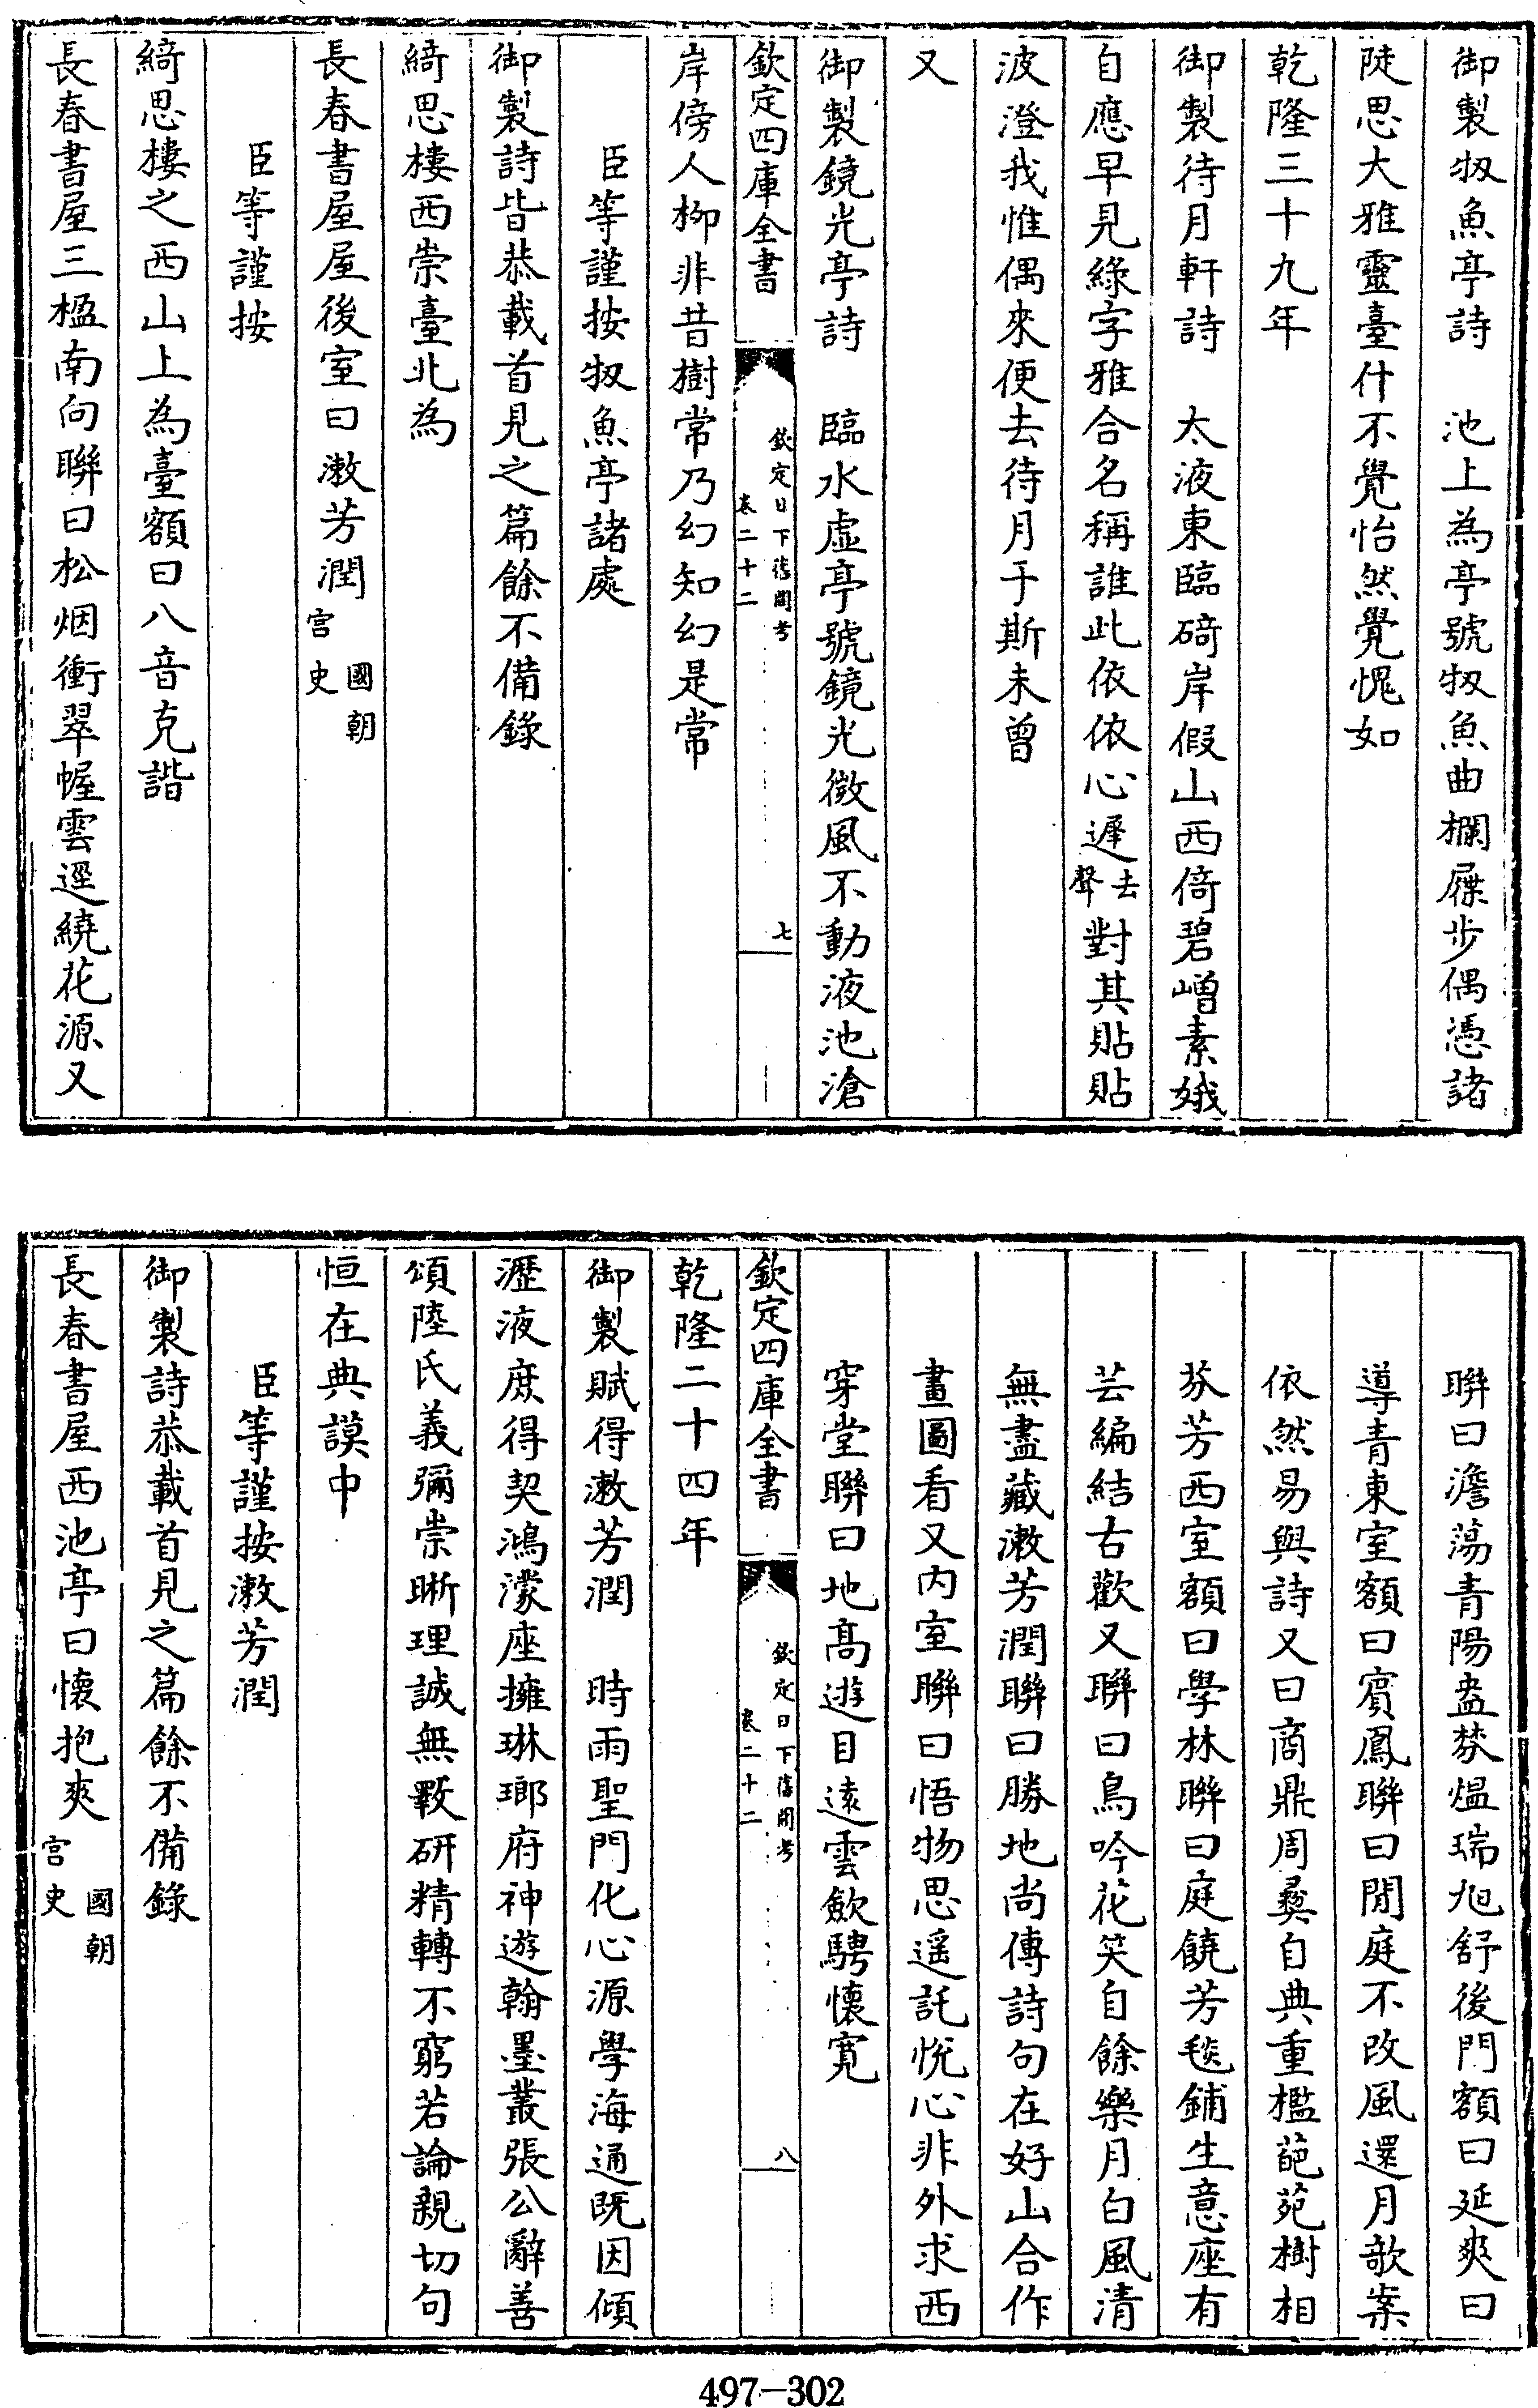 御製牣魚亭詩　池上為亭號牣魚曲欄屧步偶憑諸
陡思大雅靈臺什不覺怡然覺愧如
乾隆三十九年
御製待月軒詩　太液東臨碕岸假山西倚碧嶒素娥
自應早見綠字雅合名稱誰此依依心遲去聲對其貼貼
波澄我惟偶來便去待月于斯未曾
又
御製鏡光亭詩　臨水虛亭號鏡光微風不動液池滄
欽定四庫全書　欽定日下舊聞考　卷二十二　七
岸傍人柳非昔樹常乃幻知幻是常
臣等謹按牣魚亭諸處
御製詩皆恭載首見之篇餘不備錄
綺思樓西崇臺北為
長春書屋屋後室曰漱芳潤國朝宮史
臣等謹按
綺思樓之西山上為臺額曰八音克諧
長春書屋三楹南向聯曰松烟衝翠幄雲逕繞花源又
聯曰澹蕩青陽盎棼熅瑞旭舒後門額曰延爽曰
導青東室額曰賓鳳聯曰閒庭不改風還月欹案
依然易與詩又曰商鼎周彝自典重檻葩苑樹相
芬芳西室額曰學林聯曰庭饒芳毯鋪生意座有
芸編結古歡又聯曰鳥吟花笑自餘樂月白風清
無盡藏漱芳潤聯曰勝地尚傳詩句在好山合作
畫圖看又内室聯曰悟物思遥託悅心非外求西
穿堂聯曰地髙遊目遠雲歛騁懷寛
欽定四庫全書　欽定日下舊聞考　卷二十二　八
乾隆二十四年
御製賦得漱芳潤　時雨聖門化心源學海通既因傾
瀝液庶得契鴻濛座擁琳瑯府神遊翰墨叢張公辭善
頌陸氏義彌崇晰理誠無斁研精轉不窮若論親切句
恒在典謨中
臣等謹按漱芳潤
御製詩恭載首見之篇餘不備錄
長春書屋西池亭曰懷抱爽國朝宮史
497-302